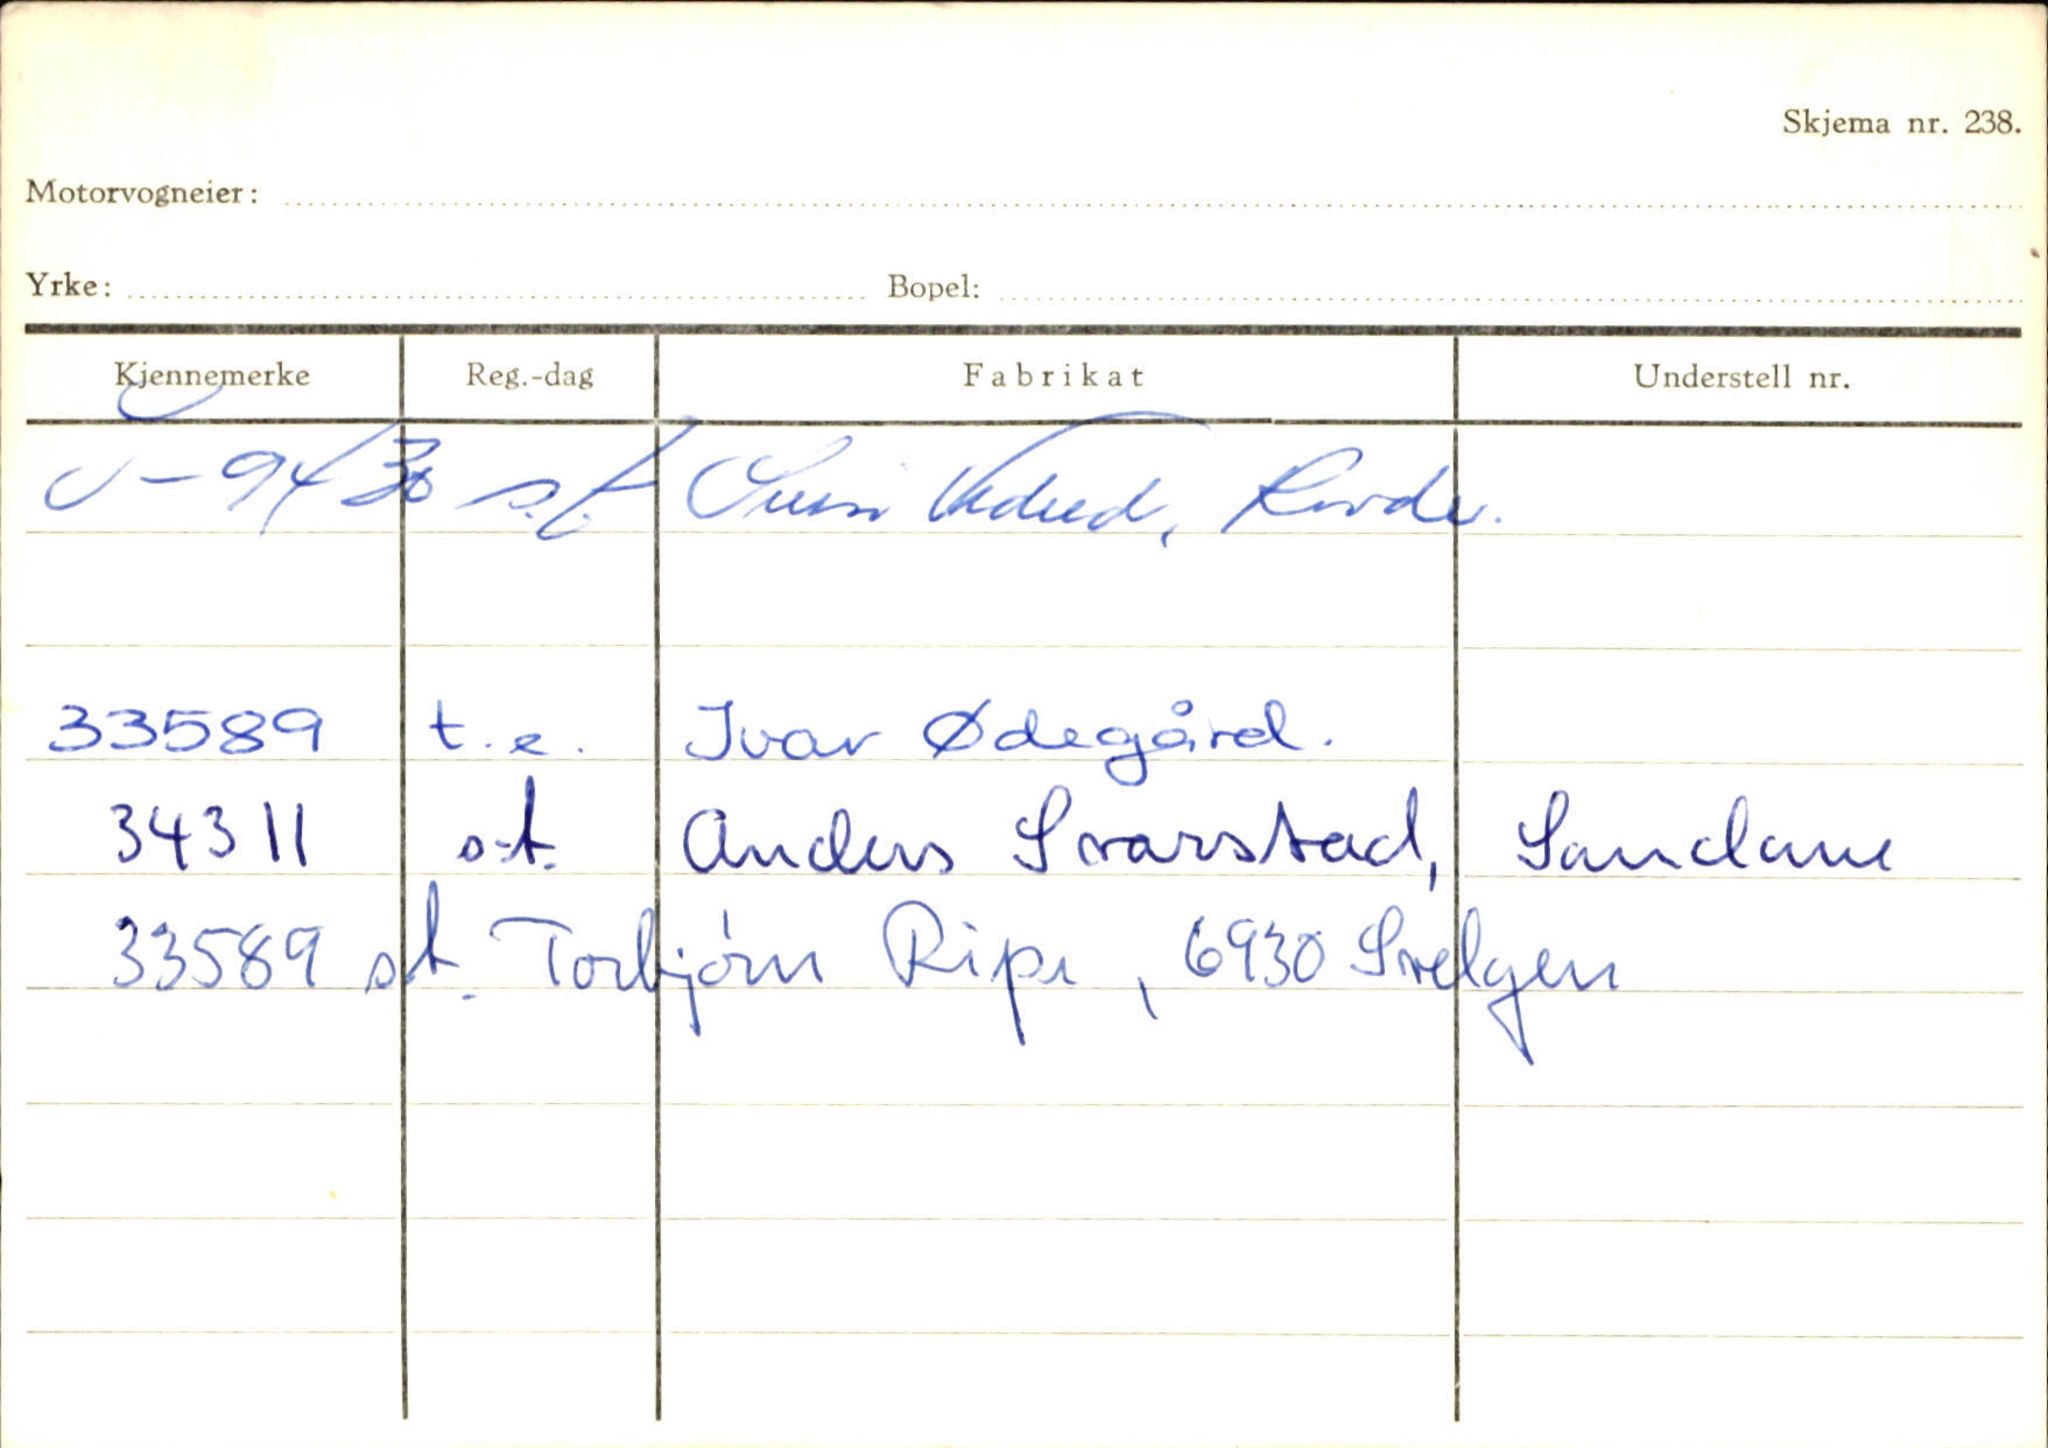 Skjema nr. 238.
Motorvogneier:
Yrke: Bopel:
Kjennemerke Reg.-dag Fabrikat Understell nr.
- 9430 s.t.
33589 t.e. Ivar Ødegård.
34311 s.t. Anders Svarstad, Sandane
33589 s.t. Torbjørn Ripe, 6930 Svelgen